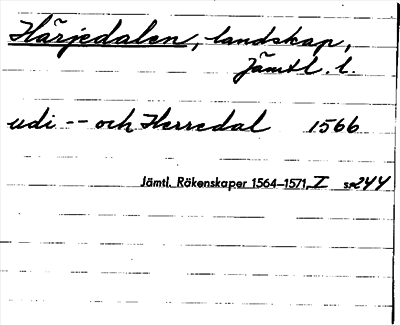 Härjedalen, landskap,
Jämtl. l.
udi -- och Herredal 1566
Jämtl. Räkenskaper 1564–1571, I s. 244